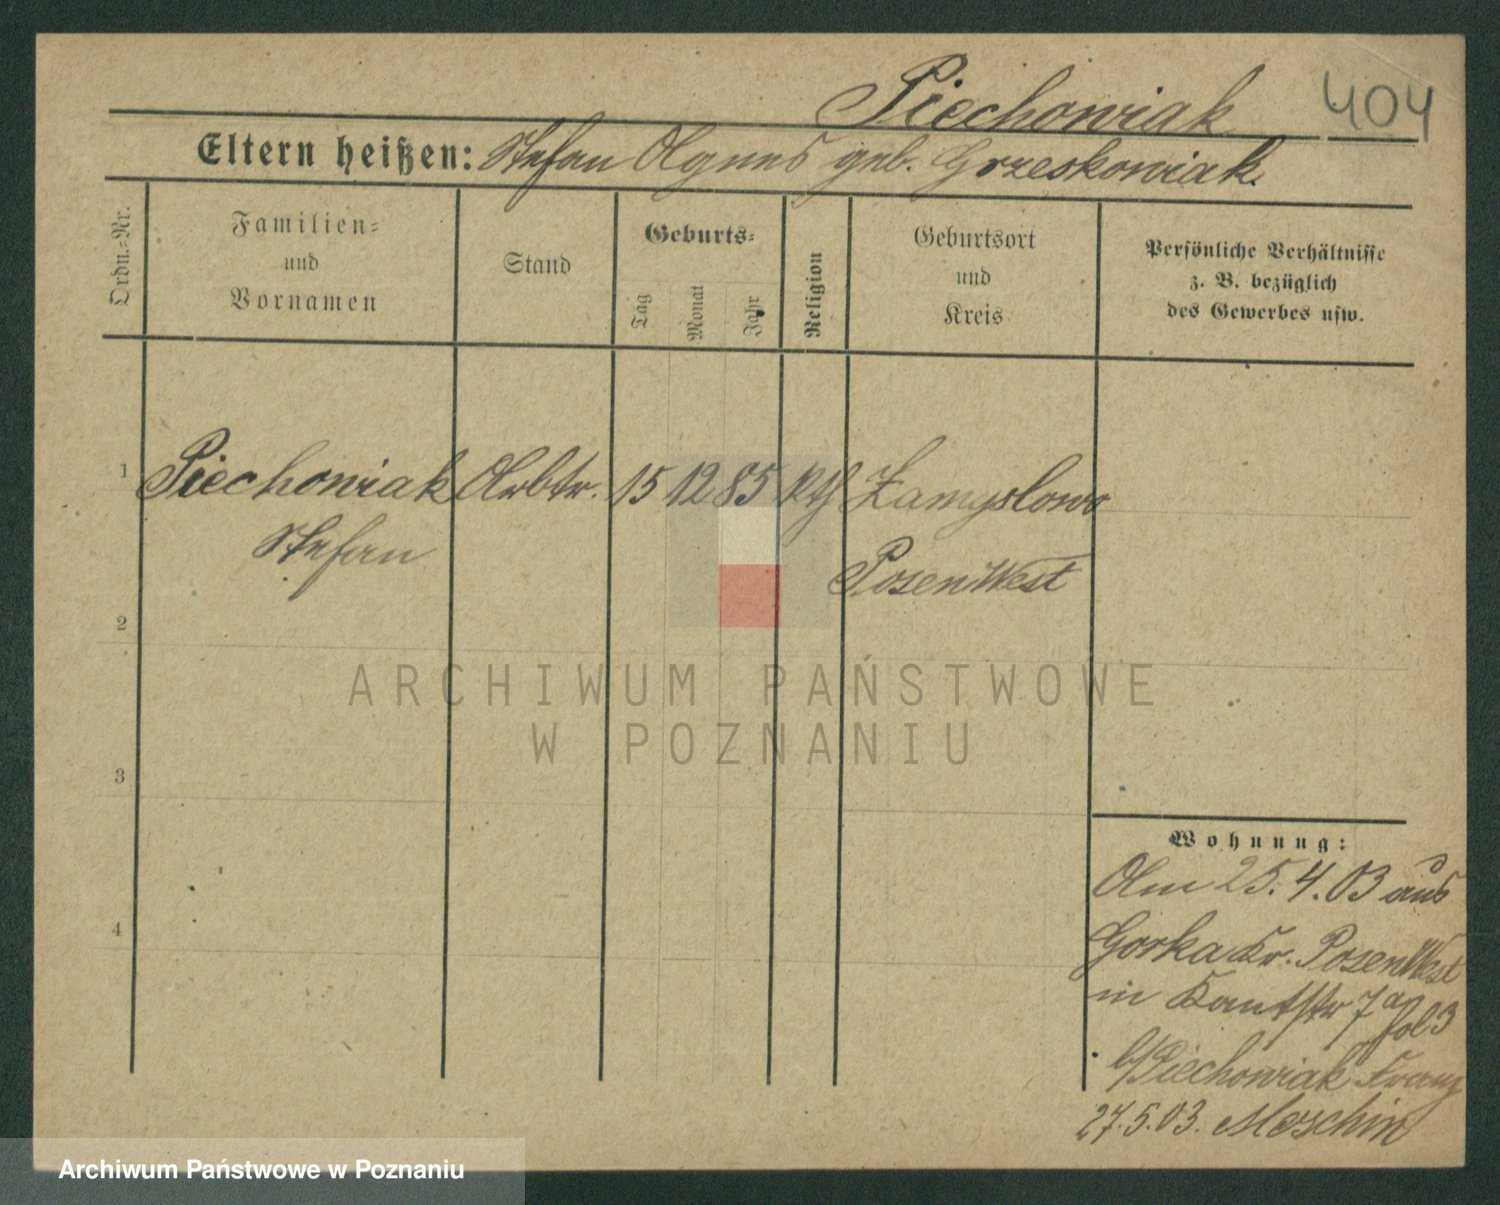 Piechowiak 404
Eltern heißen: Stefan Agnes geb. Grzeskowiak.
Ordn.-Nr.
Familien-
und
Vornamen
Stand
Geburts-
Tag
Monat
Jahr
Religion
Geburtsort
und
Kreis
Persönliche Verhältnisse
z. B. bezüglich
des Gewerbes usw.
1 Piechowiak Arbtr. 15 12 85 kth Zamyslowo
Stefan Posen West
2
3
4
Wohnung:
Am 25.4.03 aus
Gorka Kr. Posen West
in Kantstr 7a
pol 3
b/Piechowiak Franz
27.5.03. Moschin
ARCHIWUM PAŃSTWOWE
W POZNANIU
Archiwum Państwowe w Poznaniu